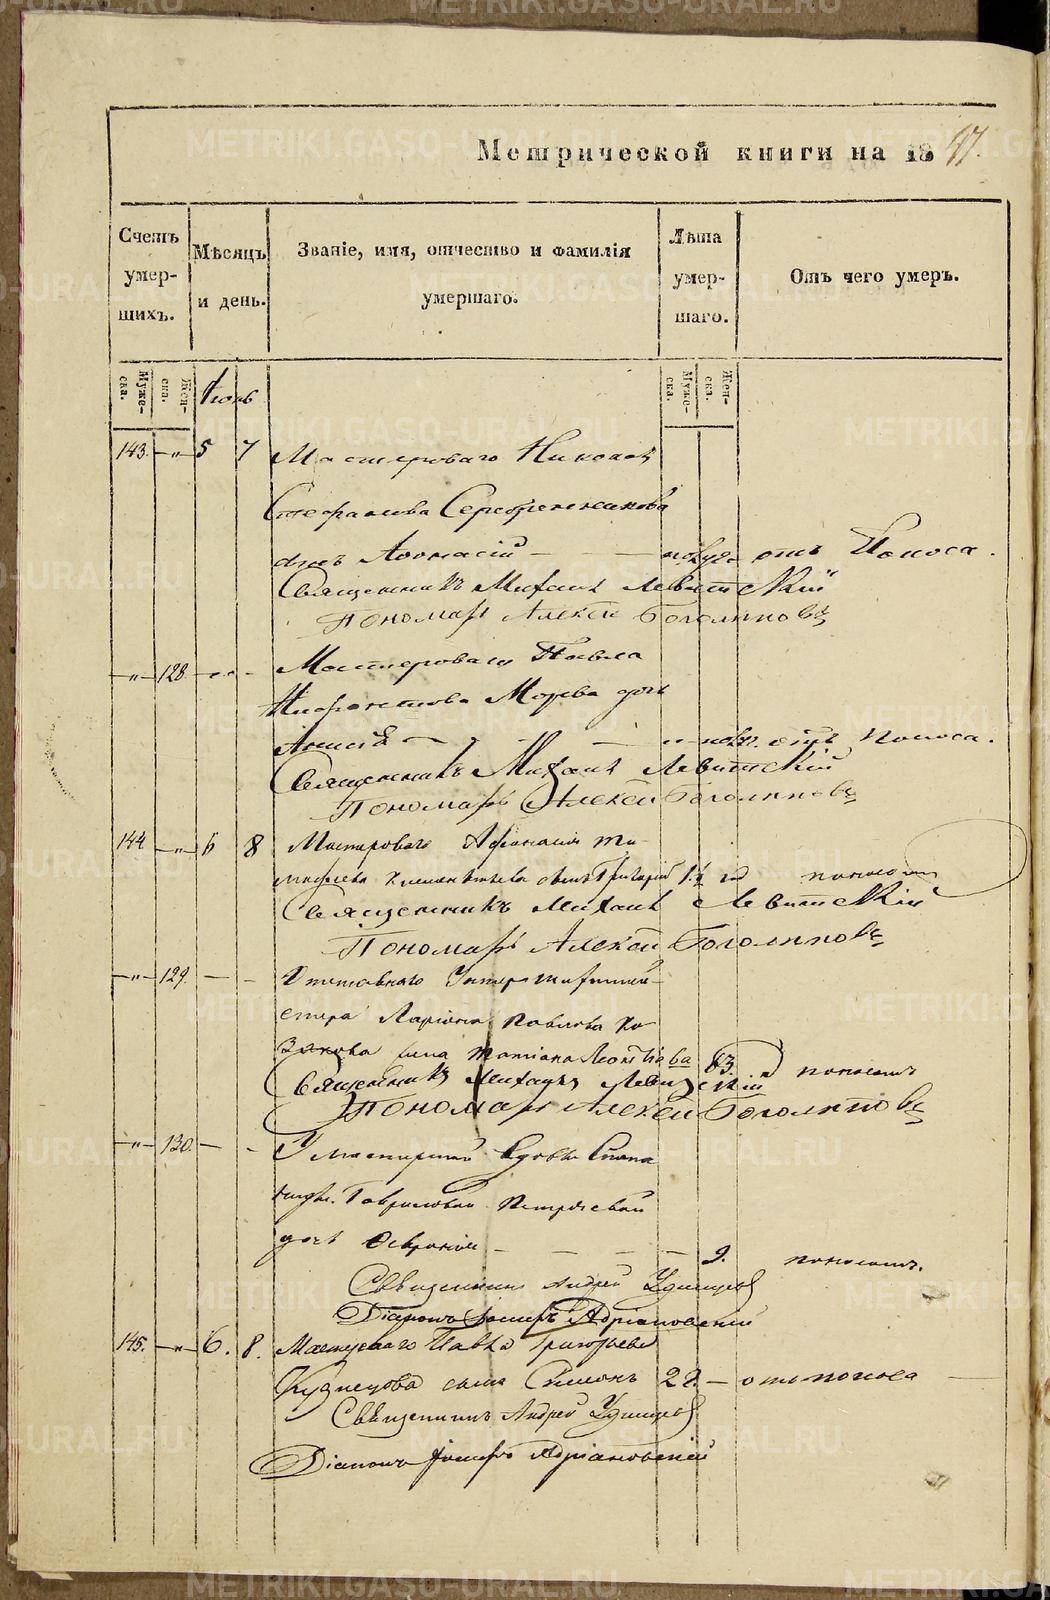 METRIKI.GASO-URAL.RU
Метрической книги на 18
Счетъ умер- шихъ.
Мѣсяцъ и день.
Званіе, имя, отчество и фамилія умершаго.
Лѣта умер- шаго.
Отъ чего умеръ.
Муже- ска.
Жен- ска.
Іюль
Муже- ска.
Жен- ска.
143. „ 5 7 Мастероваго Николая
Стефанова Серебренникова
сынъ Аѳонасій отъ Поноса.
Священникъ Михаилъ Левитскій
Пономарь Алексей Боголѣповъ
„ 128. Мастероваго Павла
Морева дочь
Анисія отъ поноса.
Священникъ Михаилъ Левитскій
Пономарь Алексей Боголѣповъ
144 „ 6 8 Мастероваго Афонасія Ти-
мофеева сынъ Григорій поносомъ
Священникъ Михаилъ Левитскій
Пономарь Алексей Боголѣповъ
„ 129. Отставнаго Унтер
Ларіона Павлова Ко-
закова жена Татіана Леонтіева 63. поносомъ
Священникъ Михаилъ Левитскій
Пономарь Алексей Боголѣповъ
„ 130. Умастерской Вдовы Степа
Гавриловой Петровой
дочь Февронія 2. поносомъ.
Священникъ Андрей Удинцевъ
Діаконъ Іосифъ Адріановскій
145. „ 6. 8. Мастероваго Павла Григорьева
Кузнецова сынъ Симонъ 2 отъ поноса
Священникъ Андрей Удинцевъ
Діаконъ Іосифъ Адріановскій